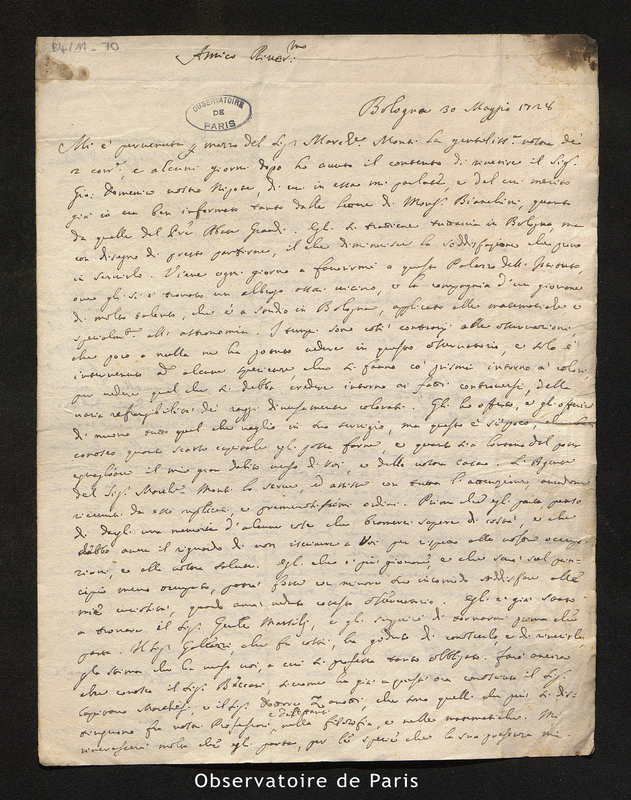 B4/11 - 70
Amico River.mo
OBSERVATOIRE
DE
PARIS
Bologna 30 Maggio 1728
Mi è pervenuta p mezzo del Sig. March. Monti la gentiliss. vostra de'
2 corr., e alcuni giorni dopo ho avuto il contento di riverire il Sig.
Gio: Domenico vostro Nipote, di cui in essa mi parlate, e del cui merito
già io era ben informato tanto dalle lettere di Mons. Bianchini, quanto
da quelle del Pre Abate Grandi. Egli si trattiene tuttavia in Bologna, ma
con disegno di presto partirne, il che diminuisce la soddisfazione che provo
in servirlo. Viene ogni giorno a favorirmi a questo Palazzo dell' Instituto,
ove gli si è trovato un albergo assai vicino, e la compagnia d'un giovane
di molto talento, che è a studio in Bologna, applicato alle matematiche e
specialm. all' astronomia. I tempi sono così contrarj alle osservazioni
che poco o nulla ne ha potuto vedere in questo osservatorio, e solo è
intervenuto ad alcune sperienze che si fanno co' prismi intorno a' colori,
per vedere quel che si debba credere intorno ai fatti controversi, della
varia refrangibilità dei raggi diversamente colorati. Gli ho offerto, e gli offerirò
di nuovo tutto quel che vaglio in suo servigio, ma questo è sì poco,
conosco quanto scarso capitale egli possa farne, e quanto sia lontano dal poter
eguagliare il mio gran debito verso di Voi, e della vostra Casa. L'Agente
del Sig. March. Monti lo serve, ed assiste con tutta l'attenzione,
ricevuti da esso replicati, e premurosissimi ordini. Prima che egli parta, penso
di dargli una memoria d'alcune cose che bramerei sapere di costà, e che
debbo avere il riguardo di non ricercare a Voi per rispetto alle vostre occupa
zioni, e alla vostra salute. Egli che è più giovane, e che sarà sul prin-
cipio meno occupato, potrà forse con minore suo incomodo soddisfare alle
mie curiosità, quando avrà veduto cotesto osservatorio. Egli è già stato
a trovare il Sig. Genle Marsilj, e gli seguirà di tornarvi prima che
parta. Il Sig. che fu costì, ha goduto di conoscerlo, e di riverirlo,
gli stima che ha verso voi, a cui si professa tanto obbligato. Farò ancora
che conosca il Sig. Beccari, siccome ha già a quest' ora conosciuto il Sig.
Capitano Marchesi, e il Sig. Dottore Zanotti, che sono quelli che più si di-
stinguono fra nostri Professori, e dilettanti nella filosofia, e nelle matematiche. Mi
rincrescerà molto che egli parta, per lo più che la sua presenza mi
Observatoire de Paris